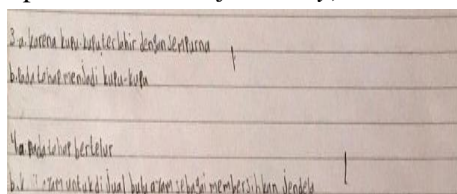 3.a. karena kupu-kupu terlahir dengan sempurna
b. Pada tahap menjadi kupu-kupu
4a. Pada tahap bertelur
b. untuk di jual bulu ayam sebagai membersihkan jendela